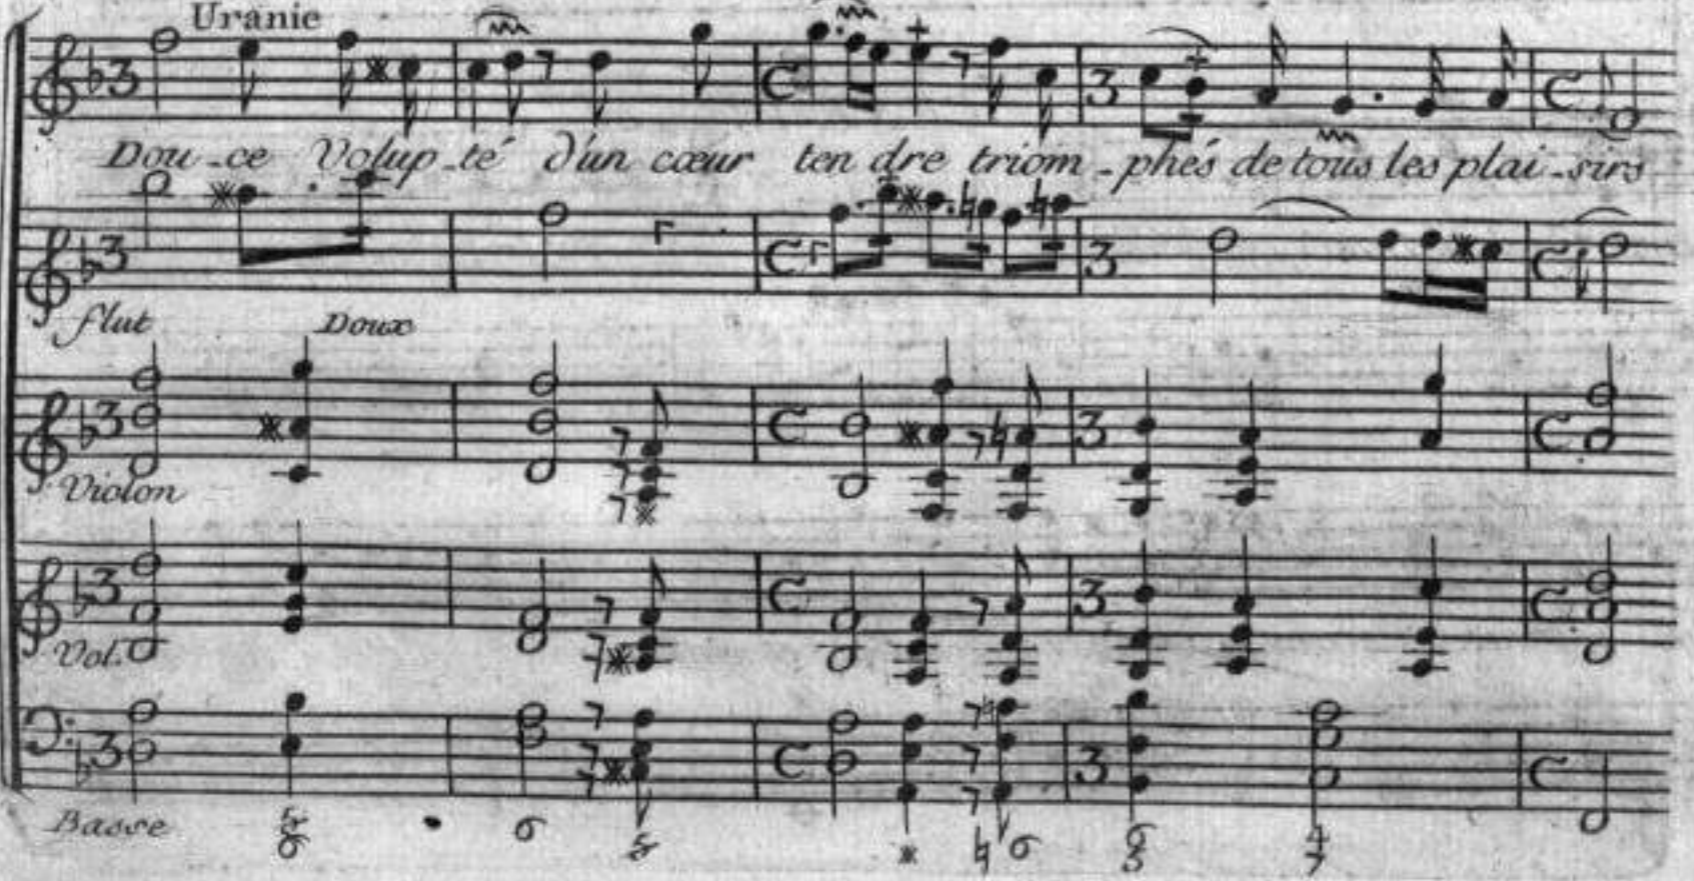 Uranie
Dou-ce Volup-té d'un cœur ten dre triom-phés de tous les plai-sirs
flut Doux
Violon
Vol.
Basse